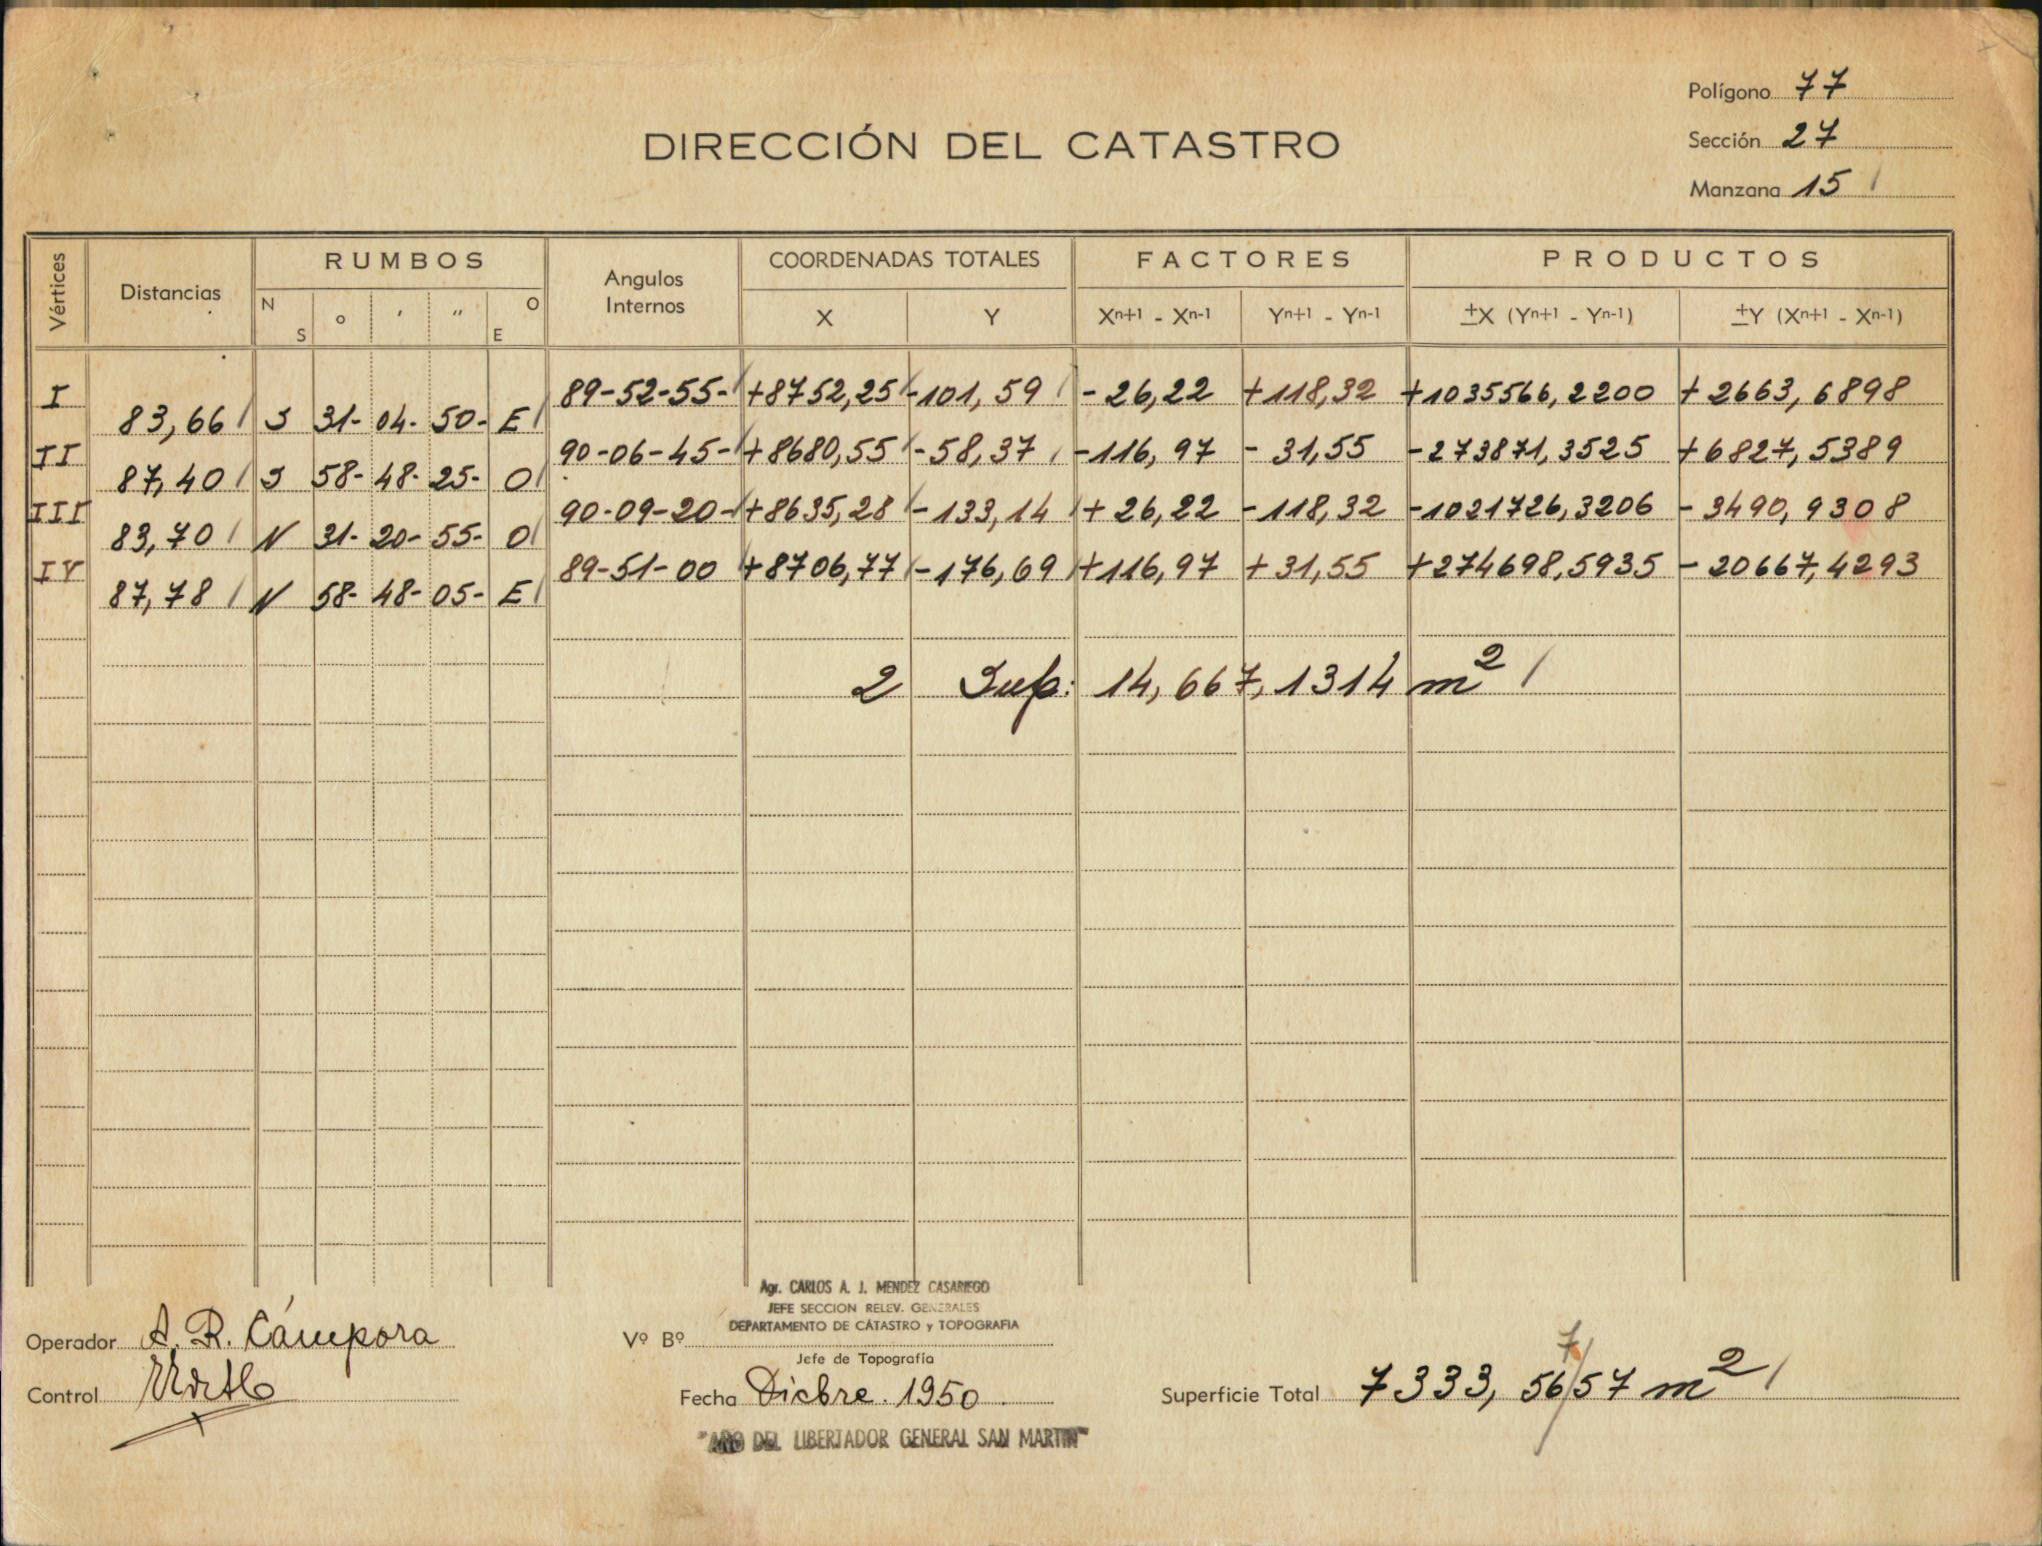 Polígono 77
DIRECCIÓN DEL CATASTRO
Sección 27
Manzana 15
Vértices Distancias RUMBOS Angulos Internos COORDENADAS TOTALES FACTORES PRODUCTOS
N S ° ' " E O X Y Xn+1 - Xn-1 Yn+1 - Yn-1 ±X (Yn+1 - Yn-1) ±Y (Xn+1 - Xn-1)
I 89-52-55- +8752,25 -101,59 -26,22 +118,32 +1035566,2200 +2663,6898
83,66 S 31- 04- 50- E
II 90-06-45- +8680,55 -58,37 -116,97 -31,55 -273871,3525 +6827,5389
87,40 S 58- 48- 25- O
III 90-09-20- +8635,28 -133,14 +26,22 -118,32 -1021726,3206 -3490,9308
83,70 N 31- 20- 55- O
IV 89-51-00 +8706,77 -176,69 +116,97 +31,55 +274698,5935 -20667,4293
87,78 N 58- 48- 05- E
2 Sup: 14,667,1314 m2
Agr. CARLOS A. J. MENDEZ CASARIEGO
JEFE SECCION RELEV. GENERALES
DEPARTAMENTO DE CATASTRO y TOPOGRAFIA
Operador A. R. Cámpora Vº Bº
Jefe de Topografía
7
Control Fecha Dicbre. 1950 Superficie Total 7333, 56/57 m2
"AÑO DEL LIBERTADOR GENERAL SAN MARTIN"